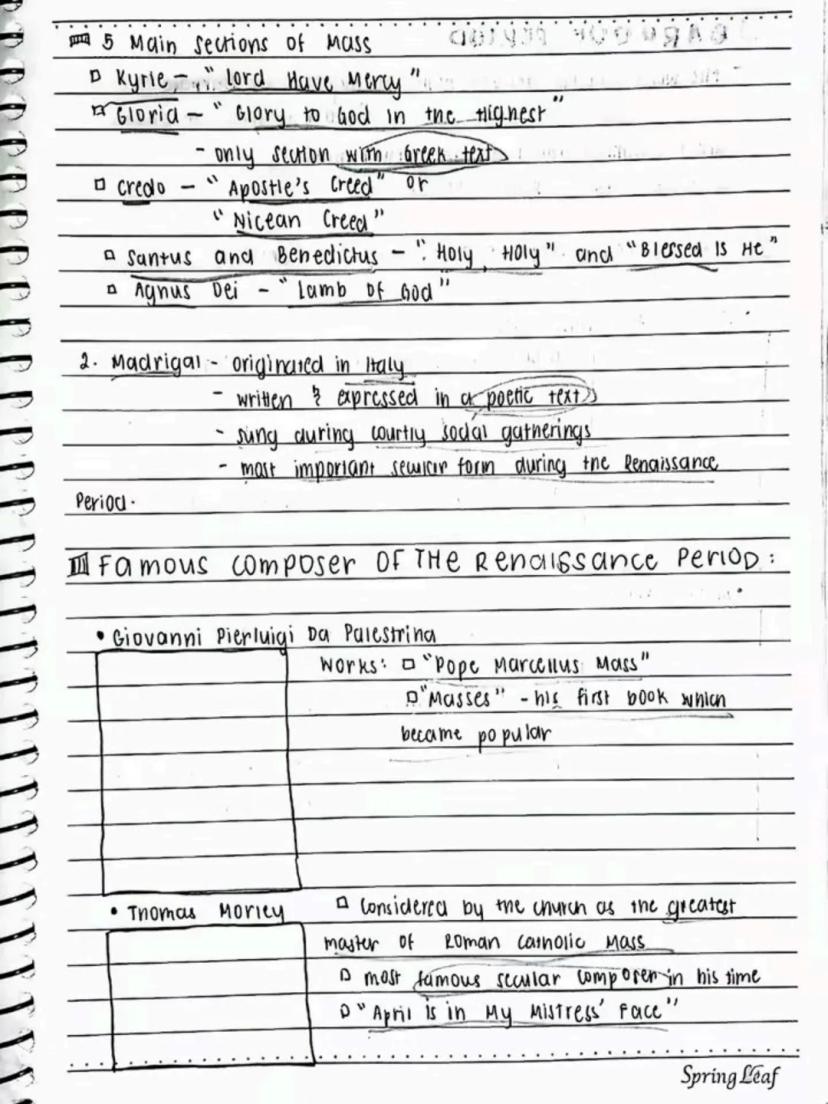 5 Main Sections of Mass
Kyrie - "Lord Have Mercy"
Gloria - "Glory to God in the Highest"
- only section with Greek text
Credo - "Apostle's Creed" or
"Nicean Creed"
Santus and Benedictus - "Holy, Holy" and "Blessed Is He"
Agnus Dei - "Lamb of God"
2. Madrigal - originated in Italy
- written & expressed in a poetic text
- sung during courtly social gatherings
- most important secular form during the Renaissance
Period.
Famous Composer of the Renaissance Period:
• Giovanni Pierluigi Da Palestrina
Works: "Pope Marcellus Mass"
"Masses" - his first book which
became popular
• Thomas Morley
Considered by the church as the greatest
master of Roman Catholic Mass
most famous secular composer in his time
"April is in My Mistress' Face"
Spring Leaf